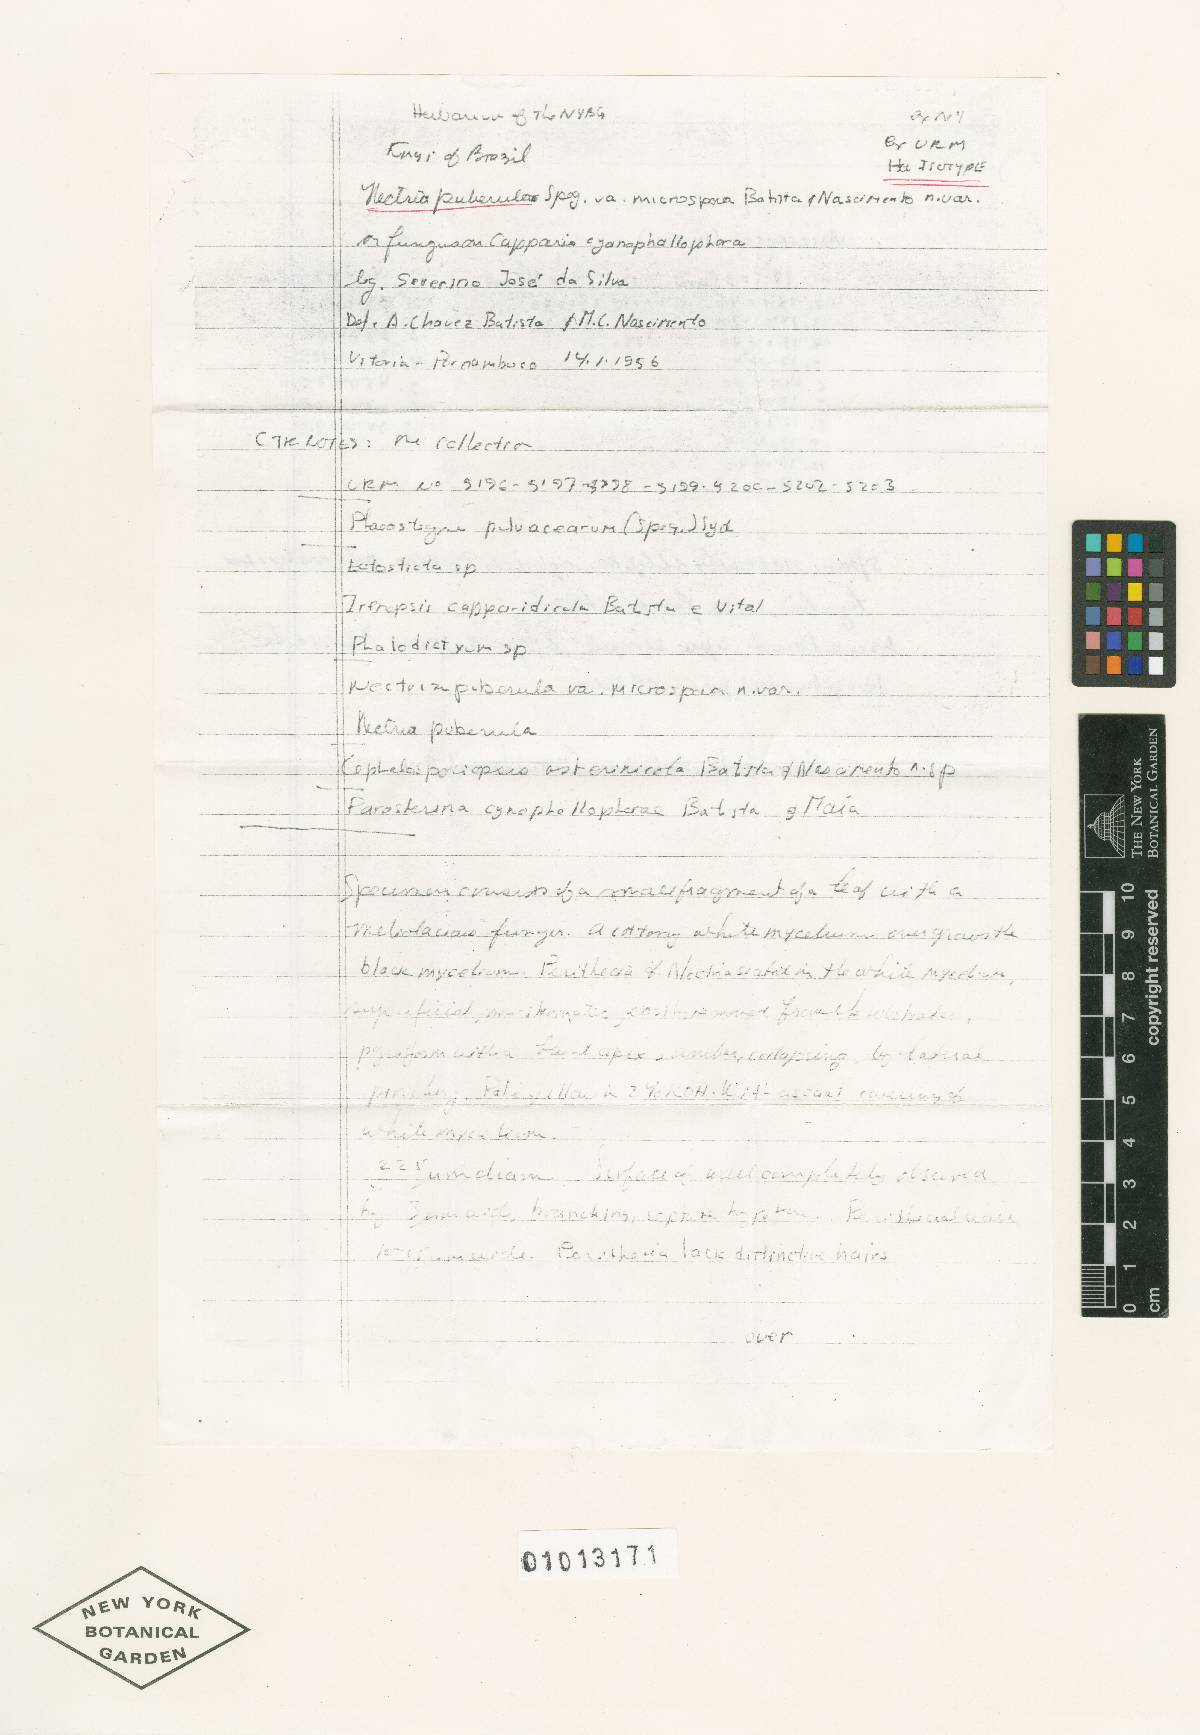 Herbarium of the NYBG
ex NY
Fungi of Brazil
ex URM
ISOTYPE
Nectria puberula Speg. va. microspora Batista & Nascimento n.var.
on fungus on Capparis cyanophallophora
leg. Severino José da Silva
Det. A. Chavez Batista & M.C. Nascimento
Vitoria - Pernambuco 14.1.1956
CTR NOTES: The collection
URM No 5196 - 5197 - 5198 - 5199 - 5200 - 5202 - 5203
(Speg.) Syd
Ectosticta sp
Irenopsis capparidicola Batista e Vital
Phalodictyum sp
Nectria puberula va. microspora n.var.
Nectria puberula
asterinicola Batista & Nascimento n.sp
Parasterina cynophallophorae Batista & Maia
Specimen consists of a small fragment of a leaf with a
meliolaceous fungus. A cottony white mycelium overgrows the
black mycelium. Perithecia of Nectria seated in the white mycelium,
superficial, non stromatic,
pyriform with a apex, umber, collapsing by lateral
pinching. Pale yellow in 3% KOH. With
white mycelium.
225 µm diam Surface of wall completely obscured
by 3 µm wide, branching, septate hyphae. Perithecial wall
µm wide. Perithecia lack distinctive hairs
over
01013171
NEW YORK
BOTANICAL
GARDEN
THE NEW YORK
BOTANICAL GARDEN
copyright reserved
10
9
8
7
6
5
4
3
2
1
0
cm